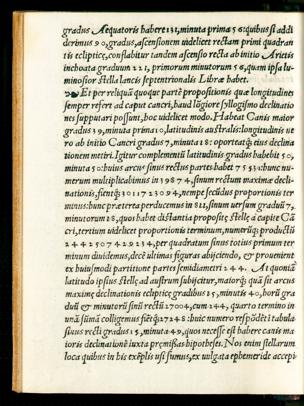 gradus Aequatoris habere 131, minuta prima 56: quibus si addi
derimus 90, gradus, ascensionem uidelicet rectam primi quadran
tis eclipticæ, conflabitur tandem ascensio recta ab initio Arietis
inchoata graduum 221, primorum minutorum 56, quam ipsa lu
minosior stella lancis septentrionalis Libræ habet.
Et per reliquã quoque partẽ propositionis quæ longitudines
semper refert ad caput cancri, haud lõgiore syllogismo declinatio
nes supputari possunt, hoc uidelicet modo. Habeat Canis maior
gradus 39, minuta prima 10, latitudinis australis: longitudinis ue
ro ab initio Cancri gradus 7, minuta 18: oporteatq́; eius declina
tionem metiri. Igitur complementũ latitudinis gradus habebit 50,
minuta 50: huius arcus sinus rectus partes habet 77531: hunc nu
merum multiplicabimus in 39874, sinum rectum maximæ decli-
nationis, fientq́;
minus: hunc præterea perducemus in 812, sinum uersum graduũ 7,
minutorum 18, quos habet distantia propositę stellę à capite Cã
cri, tertium uidelicet proportionis terminum, numerũq́; productũ
per quadratum sinus totius primum ter
minum diuidemus, decẽ ultimas figuras abijciendo, & prouenient
ex huiusmodi partitione partes semidiametri 244. At quoniã
latitudo ipsius stellę ad austrum subijcitur, maiorq́; quã sit arcus
maximę declinationis eclipticę graduũ 25, minutis 40, horũ gra
duũ & minutorũ sinũ rectũ 27004, cum 244, quarto termino in
unã sũmã colligemus fiẽtq́; 27248: huic numero respõdet ĩ tabula
sinus recti gradus 15, minuta 49, quos necesse est habere canis ma
ioris declinationẽ iuxta præmissas hipotheses. Nos enim stellarum
loca quibus in his exẽplis usi sumus, ex uulgata ephemeride accepi